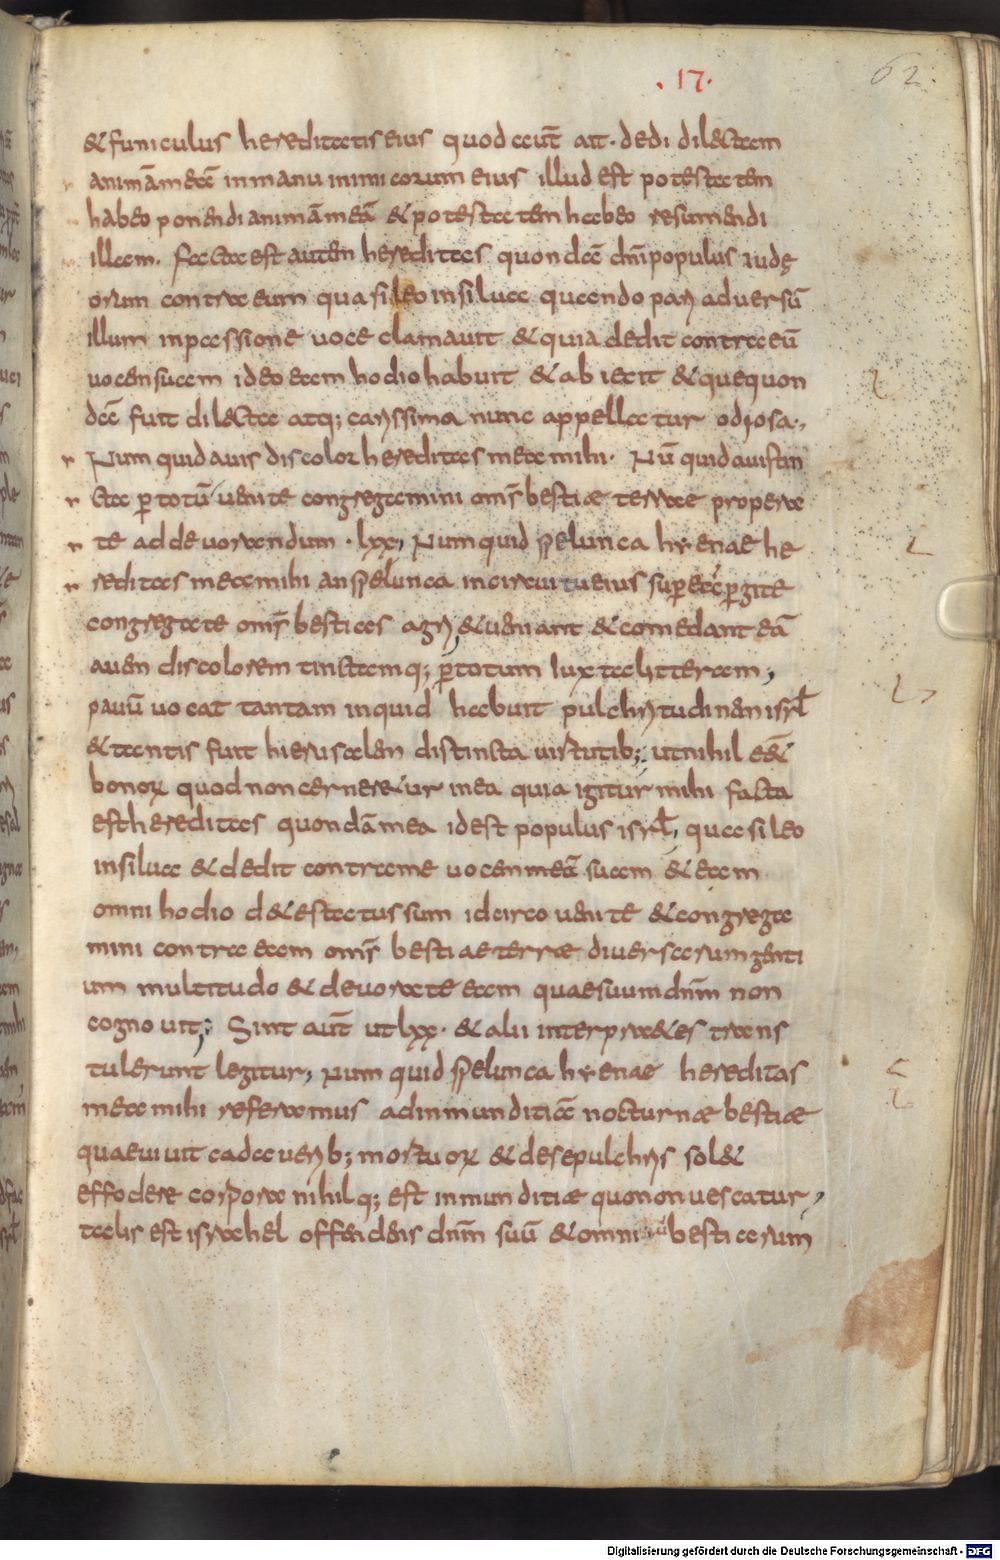 .17.
62.
& funiculus hereditatis eius quod aut̄ ait. dedi dil&tam
animāmeā inmanu inimicorum eius illud est potestatem
habeo ponendi animāmeā & potestatem habeo resumendi
illam. facta est autem hereditas quondā dn̄i populus iudę
orum contra eum quasi leo insilua quando pary aduersū
illum inpassione uoce clamauit & quia dedit contra eū
uocem suam ideo eam hodio habuit & abiecit & que quon
dā fuit dil&ta atq; carissima nunc appellatur odiosa.,
Numquid auis discolor hereditas mea mihi. Nū quid auis tin
cta p totū uenite congregamini om̄s bestiæ terrae propera
te ad deuorandum. lxx, Numquid spelunca hyenae he
reditas mea mihi an spelunca incircuitu eius sup eā pgite
congregate om̄s bestias agri, & ueniant & comedant eā
auem discolorem tinctamq; p totum iuxta litteram;
pauū uocat tantam inquid habuit pulchritudinem isrł
& tantis fuit hierusalem distincta uirtutib; ut nihil eē&
bonorꝝ quod non cerner&ur in ea quia igitur mihi facta
est hereditas quondā mea id est populus isrł, quasi leo
insilua & dedit contra me uocem meā suam & eam
omni hodio d&estatus sum idcirco uenite & congrega
mini contra eam om̄s bestiae terræ diuersarum genti
um multitudo & deuorate eam quae suum dn̄m non
cognouit; Sint aut̄ ut lxx. & alii interpr&es trans
tulerunt legitur, Numquid spelunca hyenae hereditas
mea mihi referamus ad inmunditiā nocturnæ bestiæ
quae uiuit cadauerib; mortuorꝝ & de sepulchris sol&
effodere corpora nihilq; est inmunditiæ quo non uescatur,
talis est israhel offendens dn̄m suū & omniū bestiarum
Digitalisierung gefördert durch die Deutsche Forschungsgemeinschaft - DFG